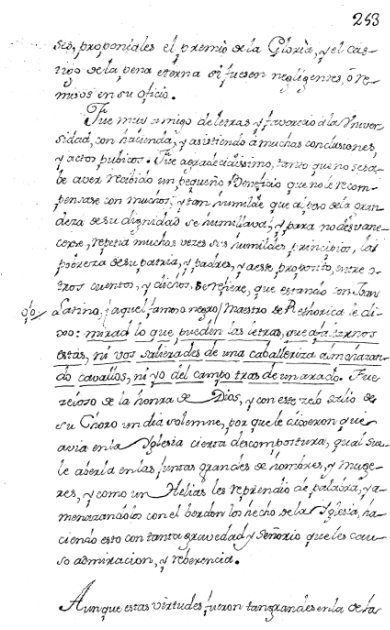 253
ses, proponiales el premio de la Gloria, y el cas-
tigo de la pena eterna si fuesen negligentes, ò re-
misos en su oficio.
Fue muy amigo de letras y favorecio à la Univer-
sidad, con hacienda, y asistiendo a muchas conclusiones,
y actos publicos. Fue agradecidissimo, tanto que no se sa-
be aver recibido un pequeño Beneficio que no le recom-
pensase con muchos, y tan humilde que al paso de la gran-
deza de su dignidad se humillava, y para no desvane-
cerse, repetia muchas vezes sus humildes principios, la
pobreza de su patria, y padres, y a este proposito, entre o-
tros cuentos, y dichos, se refiere, que estando con Joan
Latino, (aquel famoso negro) Maestro de Rethorica le di-
xo: mirad lo que pueden las letras, que a faltarnos
estas, ni vos salierades de una caballeriza almohazan-
do cavallos, ni yo del campo tras de un arado. Fue
zeloso de la honra de Dios, y con este zelo salio de
su Choro un dia solemne, por que le dixeron que
avia en la Iglesia cierta descompostura, qual sue-
le averla en las juntas grandes de hombres, y muge-
res, y como un Helias les reprendio de palabra, y a-
menazandolos con el bordon los hecho de la Iglesia, ha-
ciendo esto con tanta gravedad y Señorio que les cau-
so admiracion, y reberencia.
Aunque estas virtudes fueron tan grandes en la de la